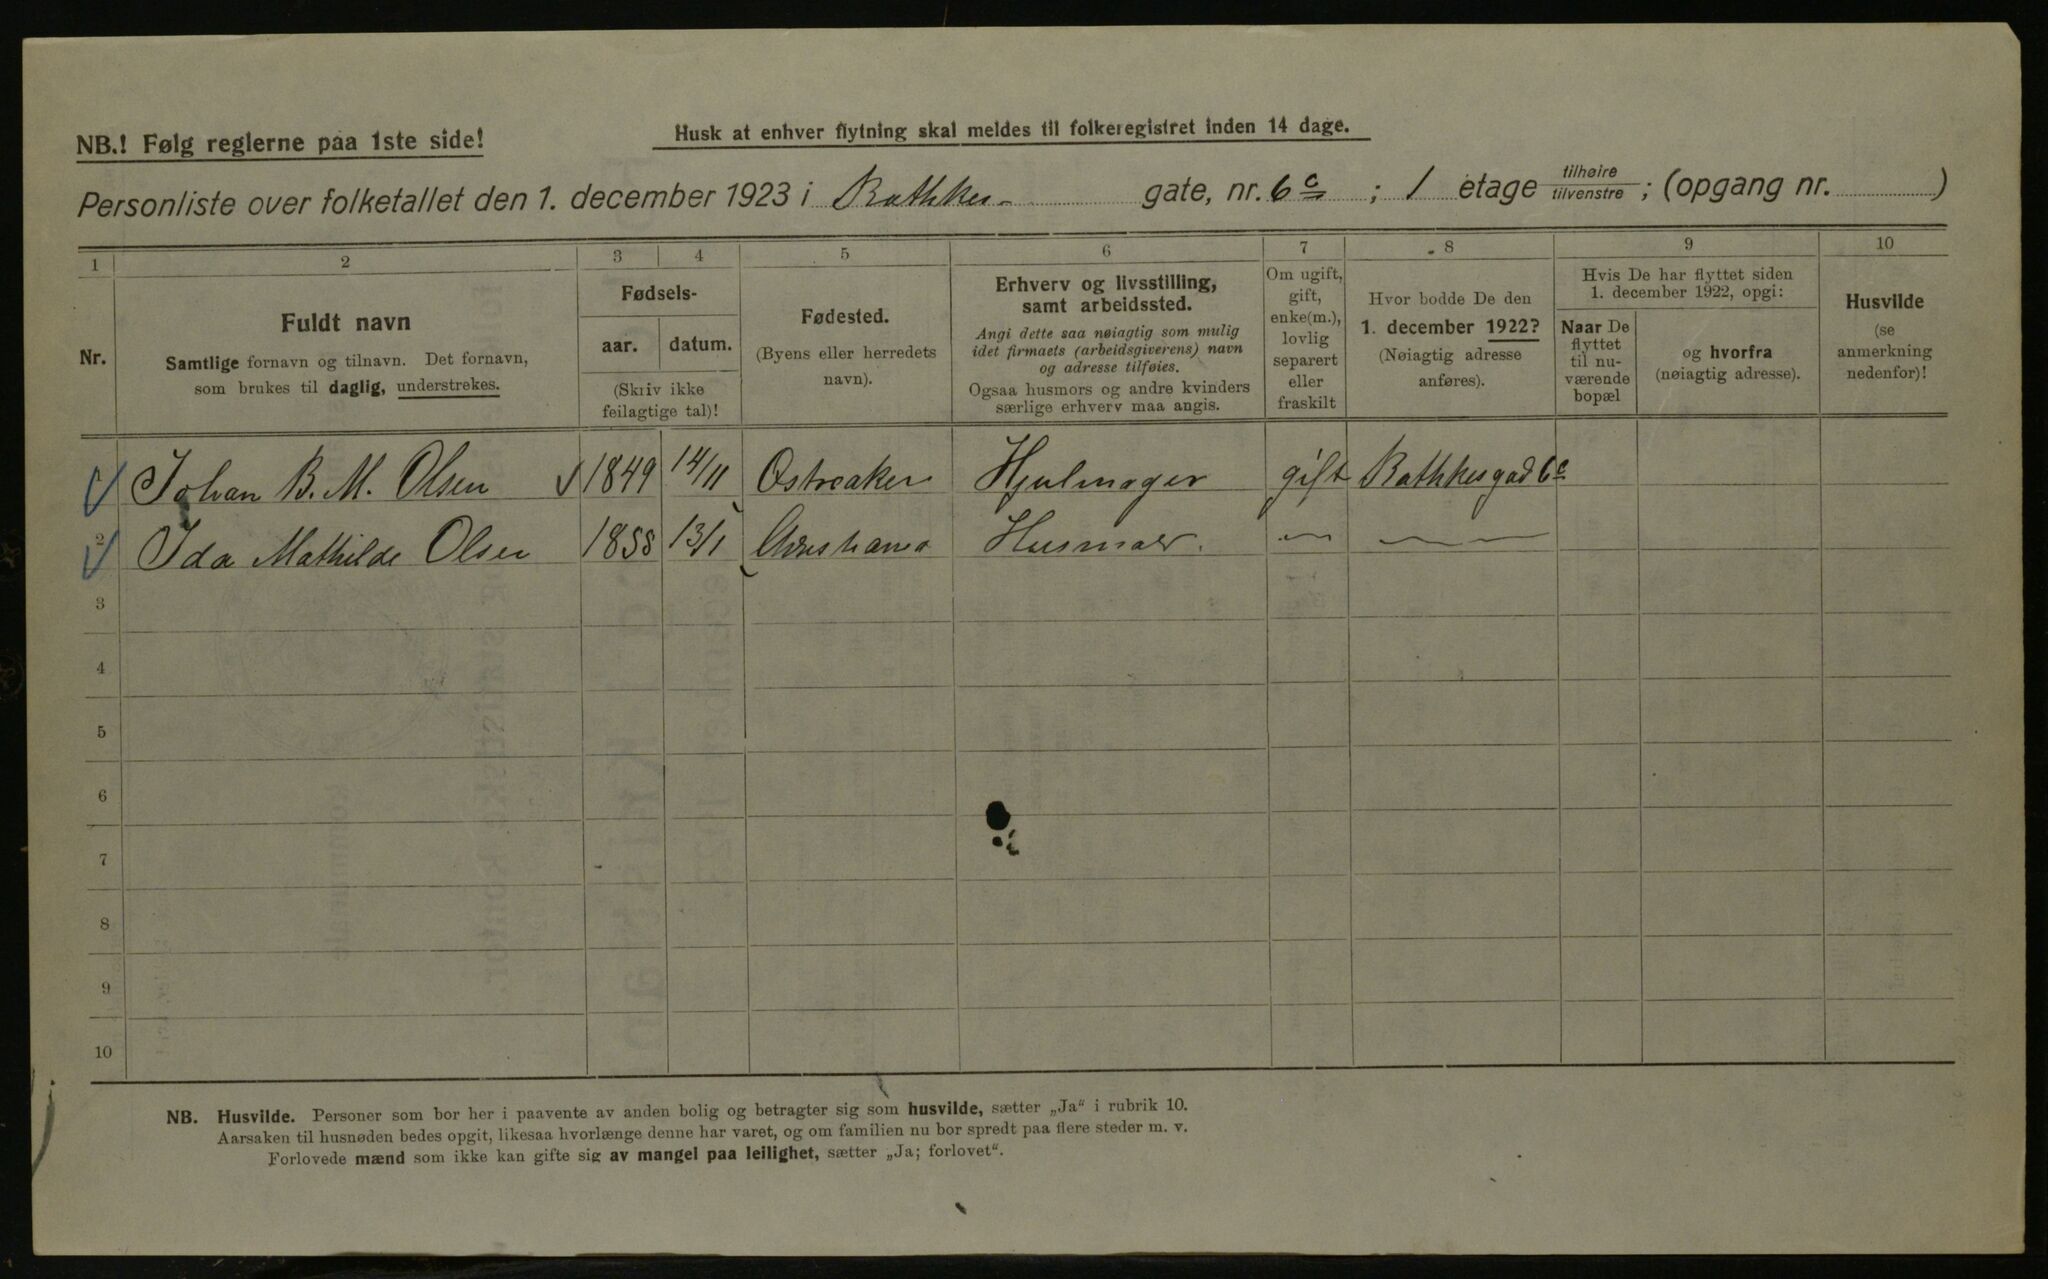 NB.! Følg reglerne paa 1ste side!
Husk at enhver flytning skal meldes til folkeregistret inden 14 dage.
Personliste over folketallet den 1. december 1923 i Rathkes- gate, nr. 6c ; 1 etage tilhøire tilvenstre ; (opgang nr. )
1 2 3 4 5 6 7 8 9 10
Nr.
Fuldt navn
Samtlige fornavn og tilnavn. Det fornavn,
som brukes til daglig, understrekes.
Fødsels-
aar. datum.
(Skriv ikke
feilagtige tal)!
Fødested.
(Byens eller herredets
navn).
Erhverv og livsstilling,
samt arbeidssted.
Angi dette saa nøiagtig som mulig
idet firmaets (arbeidsgiverens) navn
og adresse tilføies.
Ogsaa husmors og andre kvinders
særlige erhverv maa angis.
Om ugift,
gift,
enke(m.),
lovlig
separert
eller
fraskilt
Hvor bodde De den
1. december 1922?
(Nøiagtig adresse
anføres).
Hvis De har flyttet siden
1. december 1922, opgi:
Naar De
flyttet
til nu-
værende
bopæl
og hvorfra
(nøiagtig adresse).
Husvilde
(se
anmerkning
nedenfor)!
Johan B. M. Olsen 1849 14/11 Østreaker Hjulmager gift Rathkesgad 6c
2 Ida Mathilde Olsen 1858 13/1 Christiania Husmoer. — —
3
4
5
6
7
8
9
10
NB. Husvilde. Personer som bor her i paavente av anden bolig og betragter sig som husvilde, sætter „Ja" i rubrik 10.
Aarsaken til husnøden bedes opgit, likesaa hvorlænge denne har varet, og om familien nu bor spredt paa flere steder m. v.
Forlovede mænd som ikke kan gifte sig av mangel paa leilighet, sætter „Ja; forlovet".